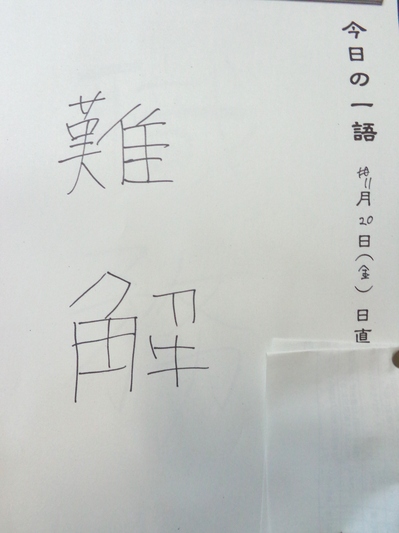 今日の一語
11月20日(金)日直
難
解